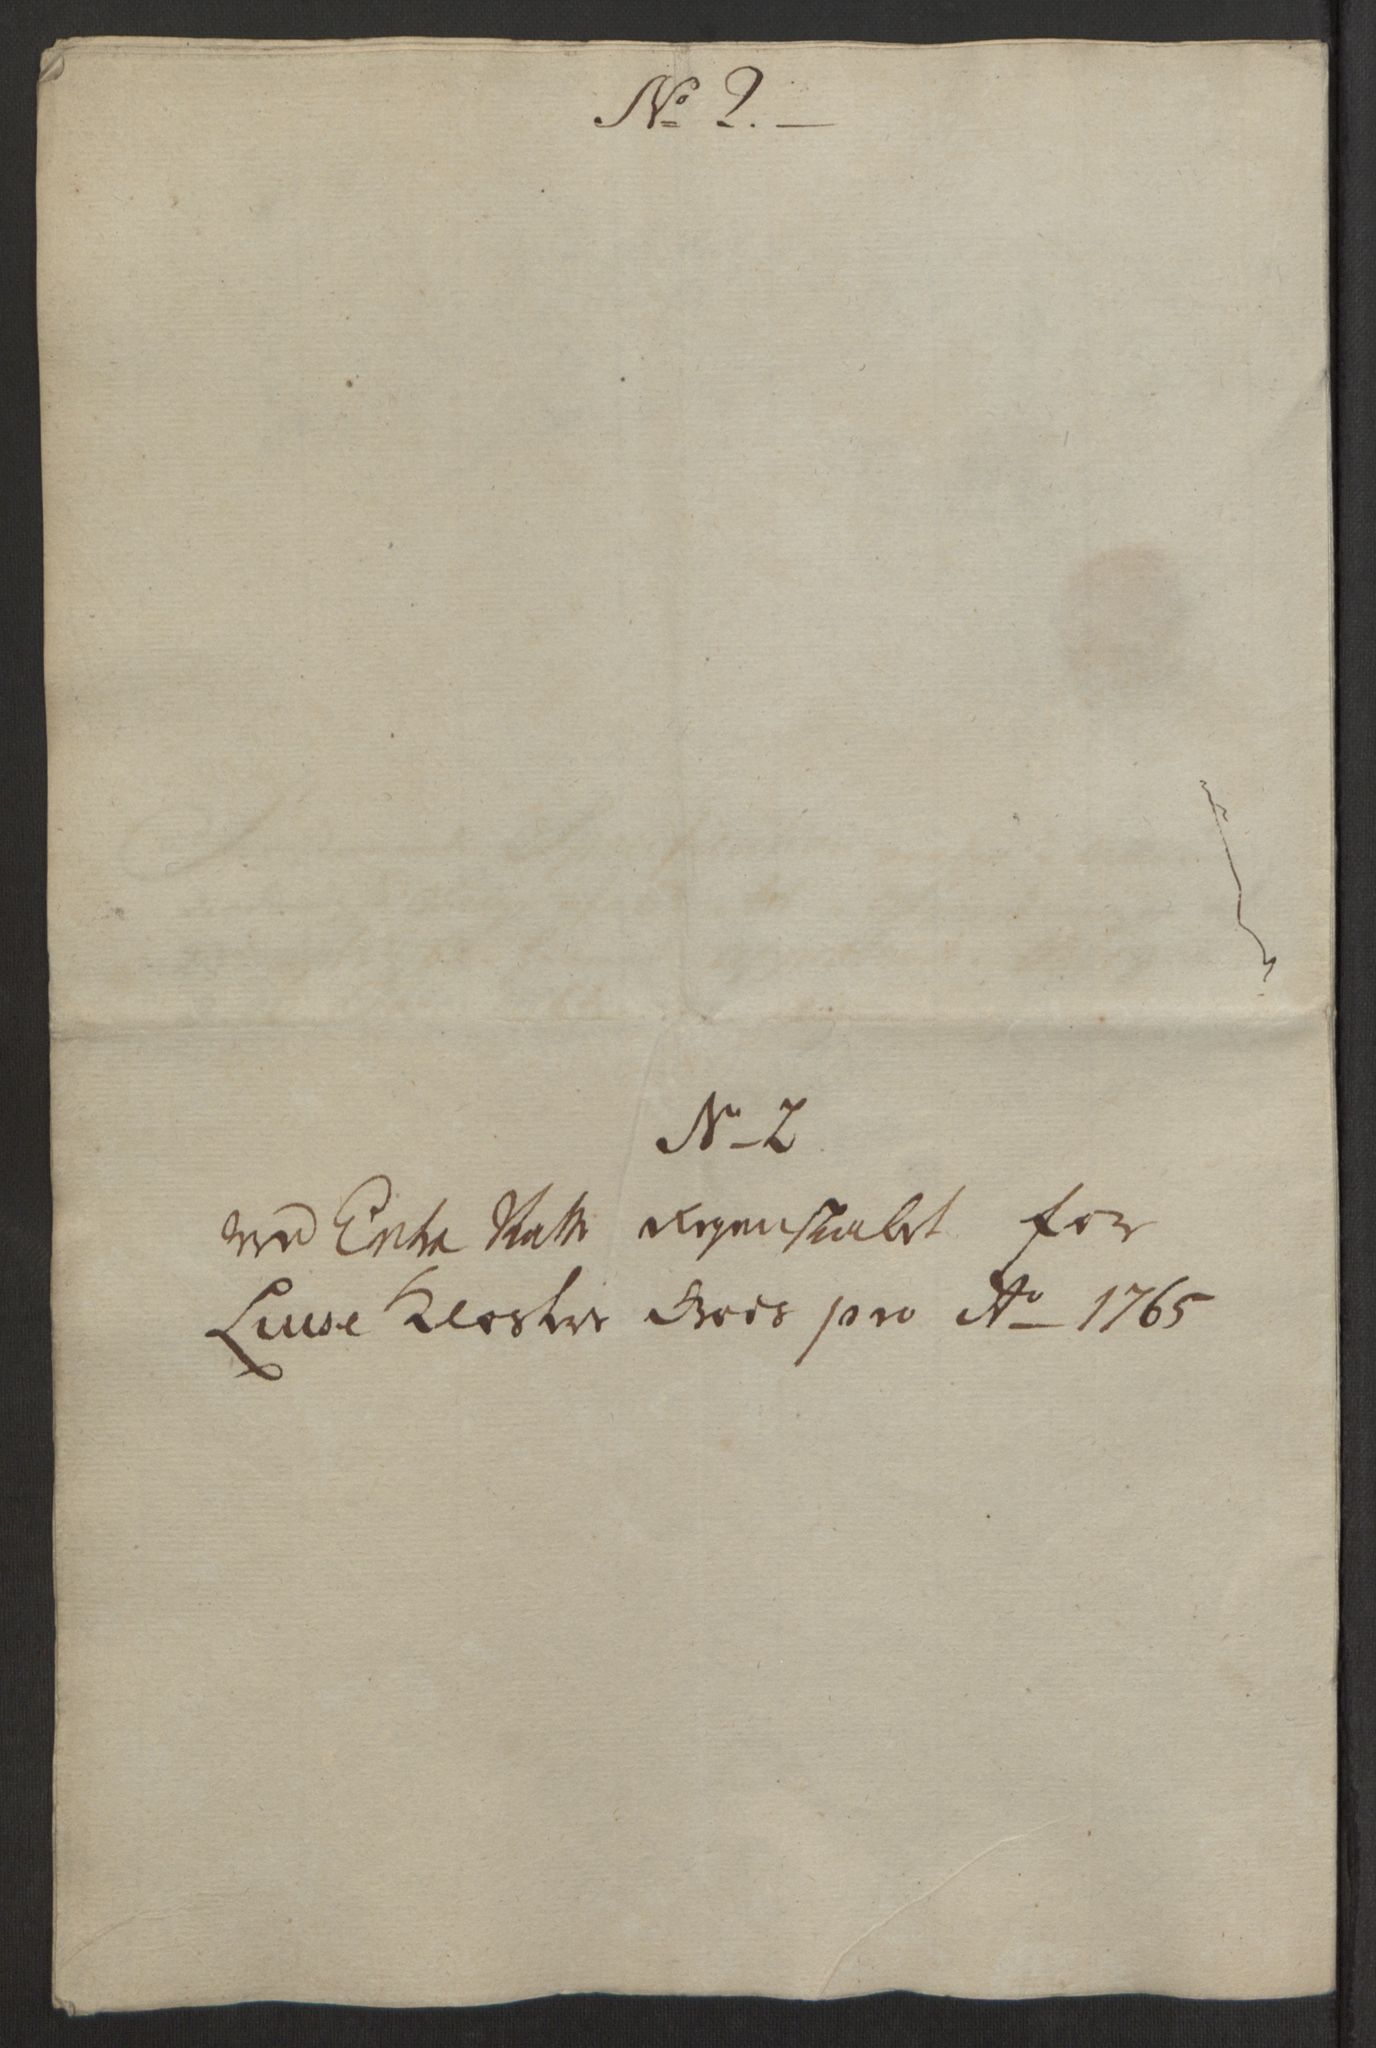 No 2.
No 2
ved Extra Skatte Regenskabet for
Luse Kloster Gods pro Ao 1765